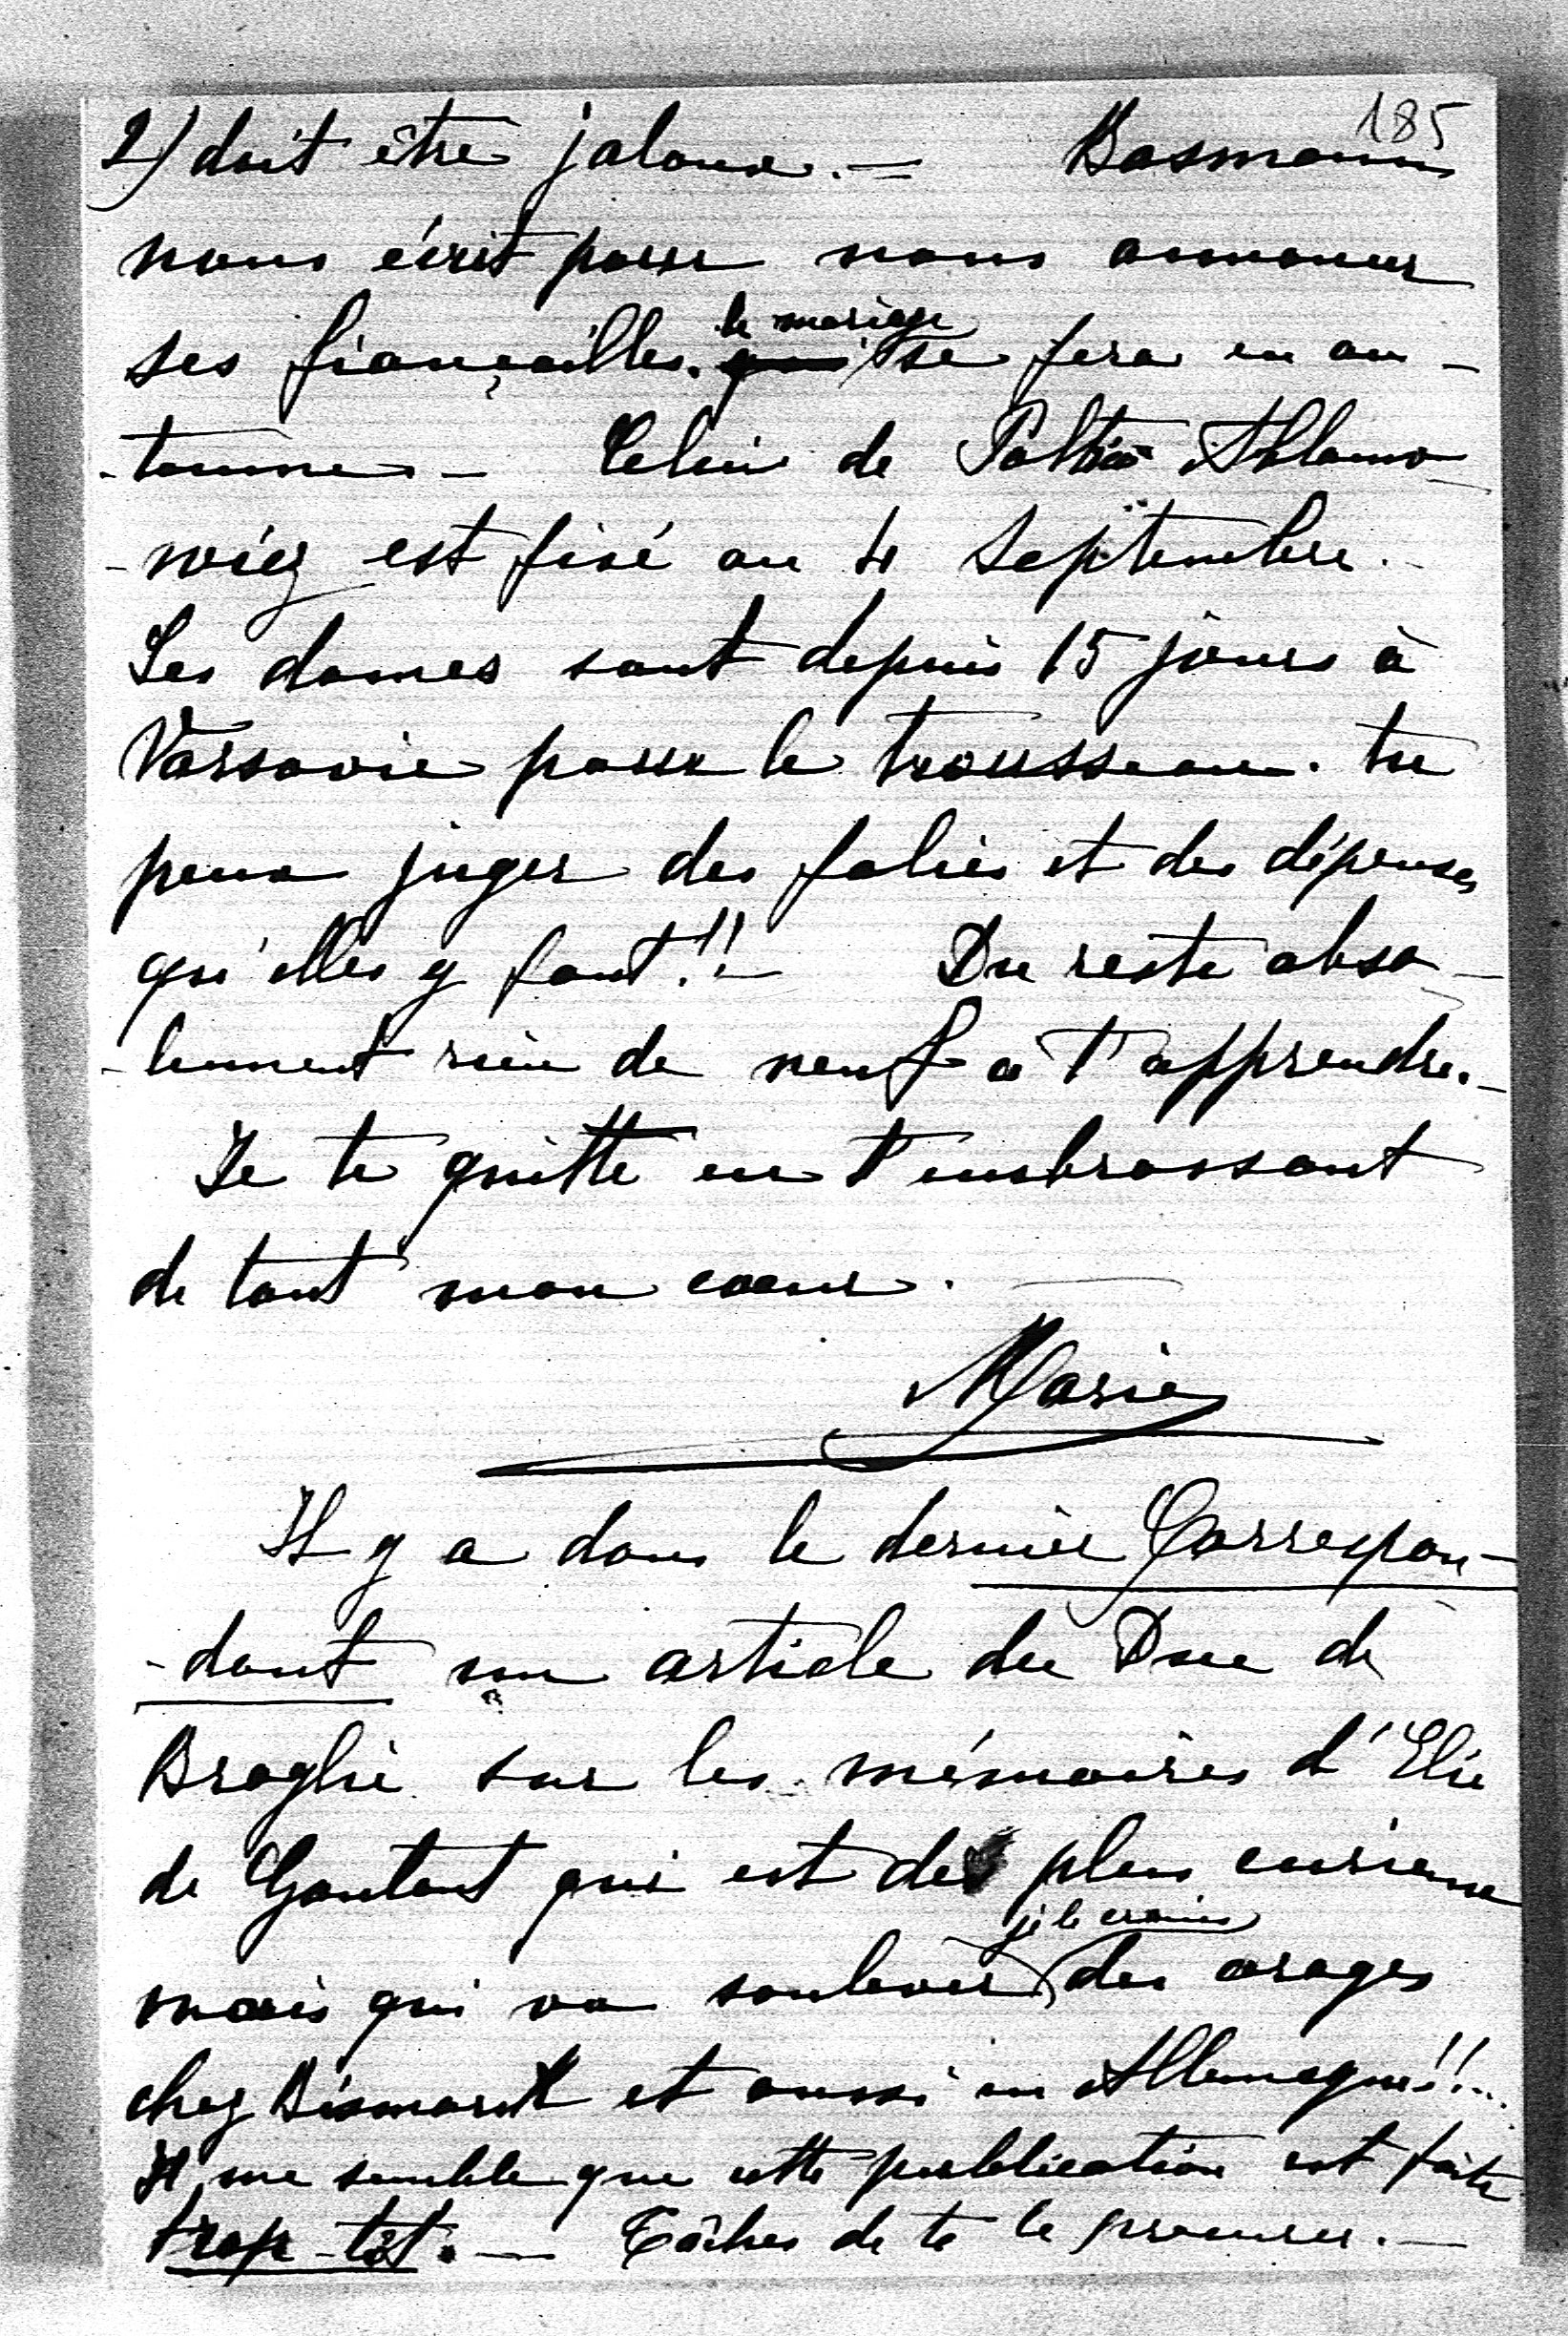 185
2) doit être jaloux. —
nous écrit pour nous annoncer
ses fiançailles. le mariage se fera en au-
-tomne — Celui de
est fixé au 4 Septembre.
Les dames sont depuis 15 jours à
Varsovie pour le trousseau. tu
peux juger des folies et des dépenses
qu'elles y font!! — Du reste abso-
-lument rien de neuf à t'apprendre. —
Je te quitte en t'embrassant
de tout mon coeur. —
Marie
Il y a dans le dernier Correspon-
-dant un article du Duc de
Broglie sur les mémoires d'Elie
de Gontaut qui est des plus curieux
mais qui va soulever je le crains des orages
chez Bismarck et aussi en Allemagne!!..
Il me semble que cette publication est faite
trop tôt. — Tâches de te le procurer. —